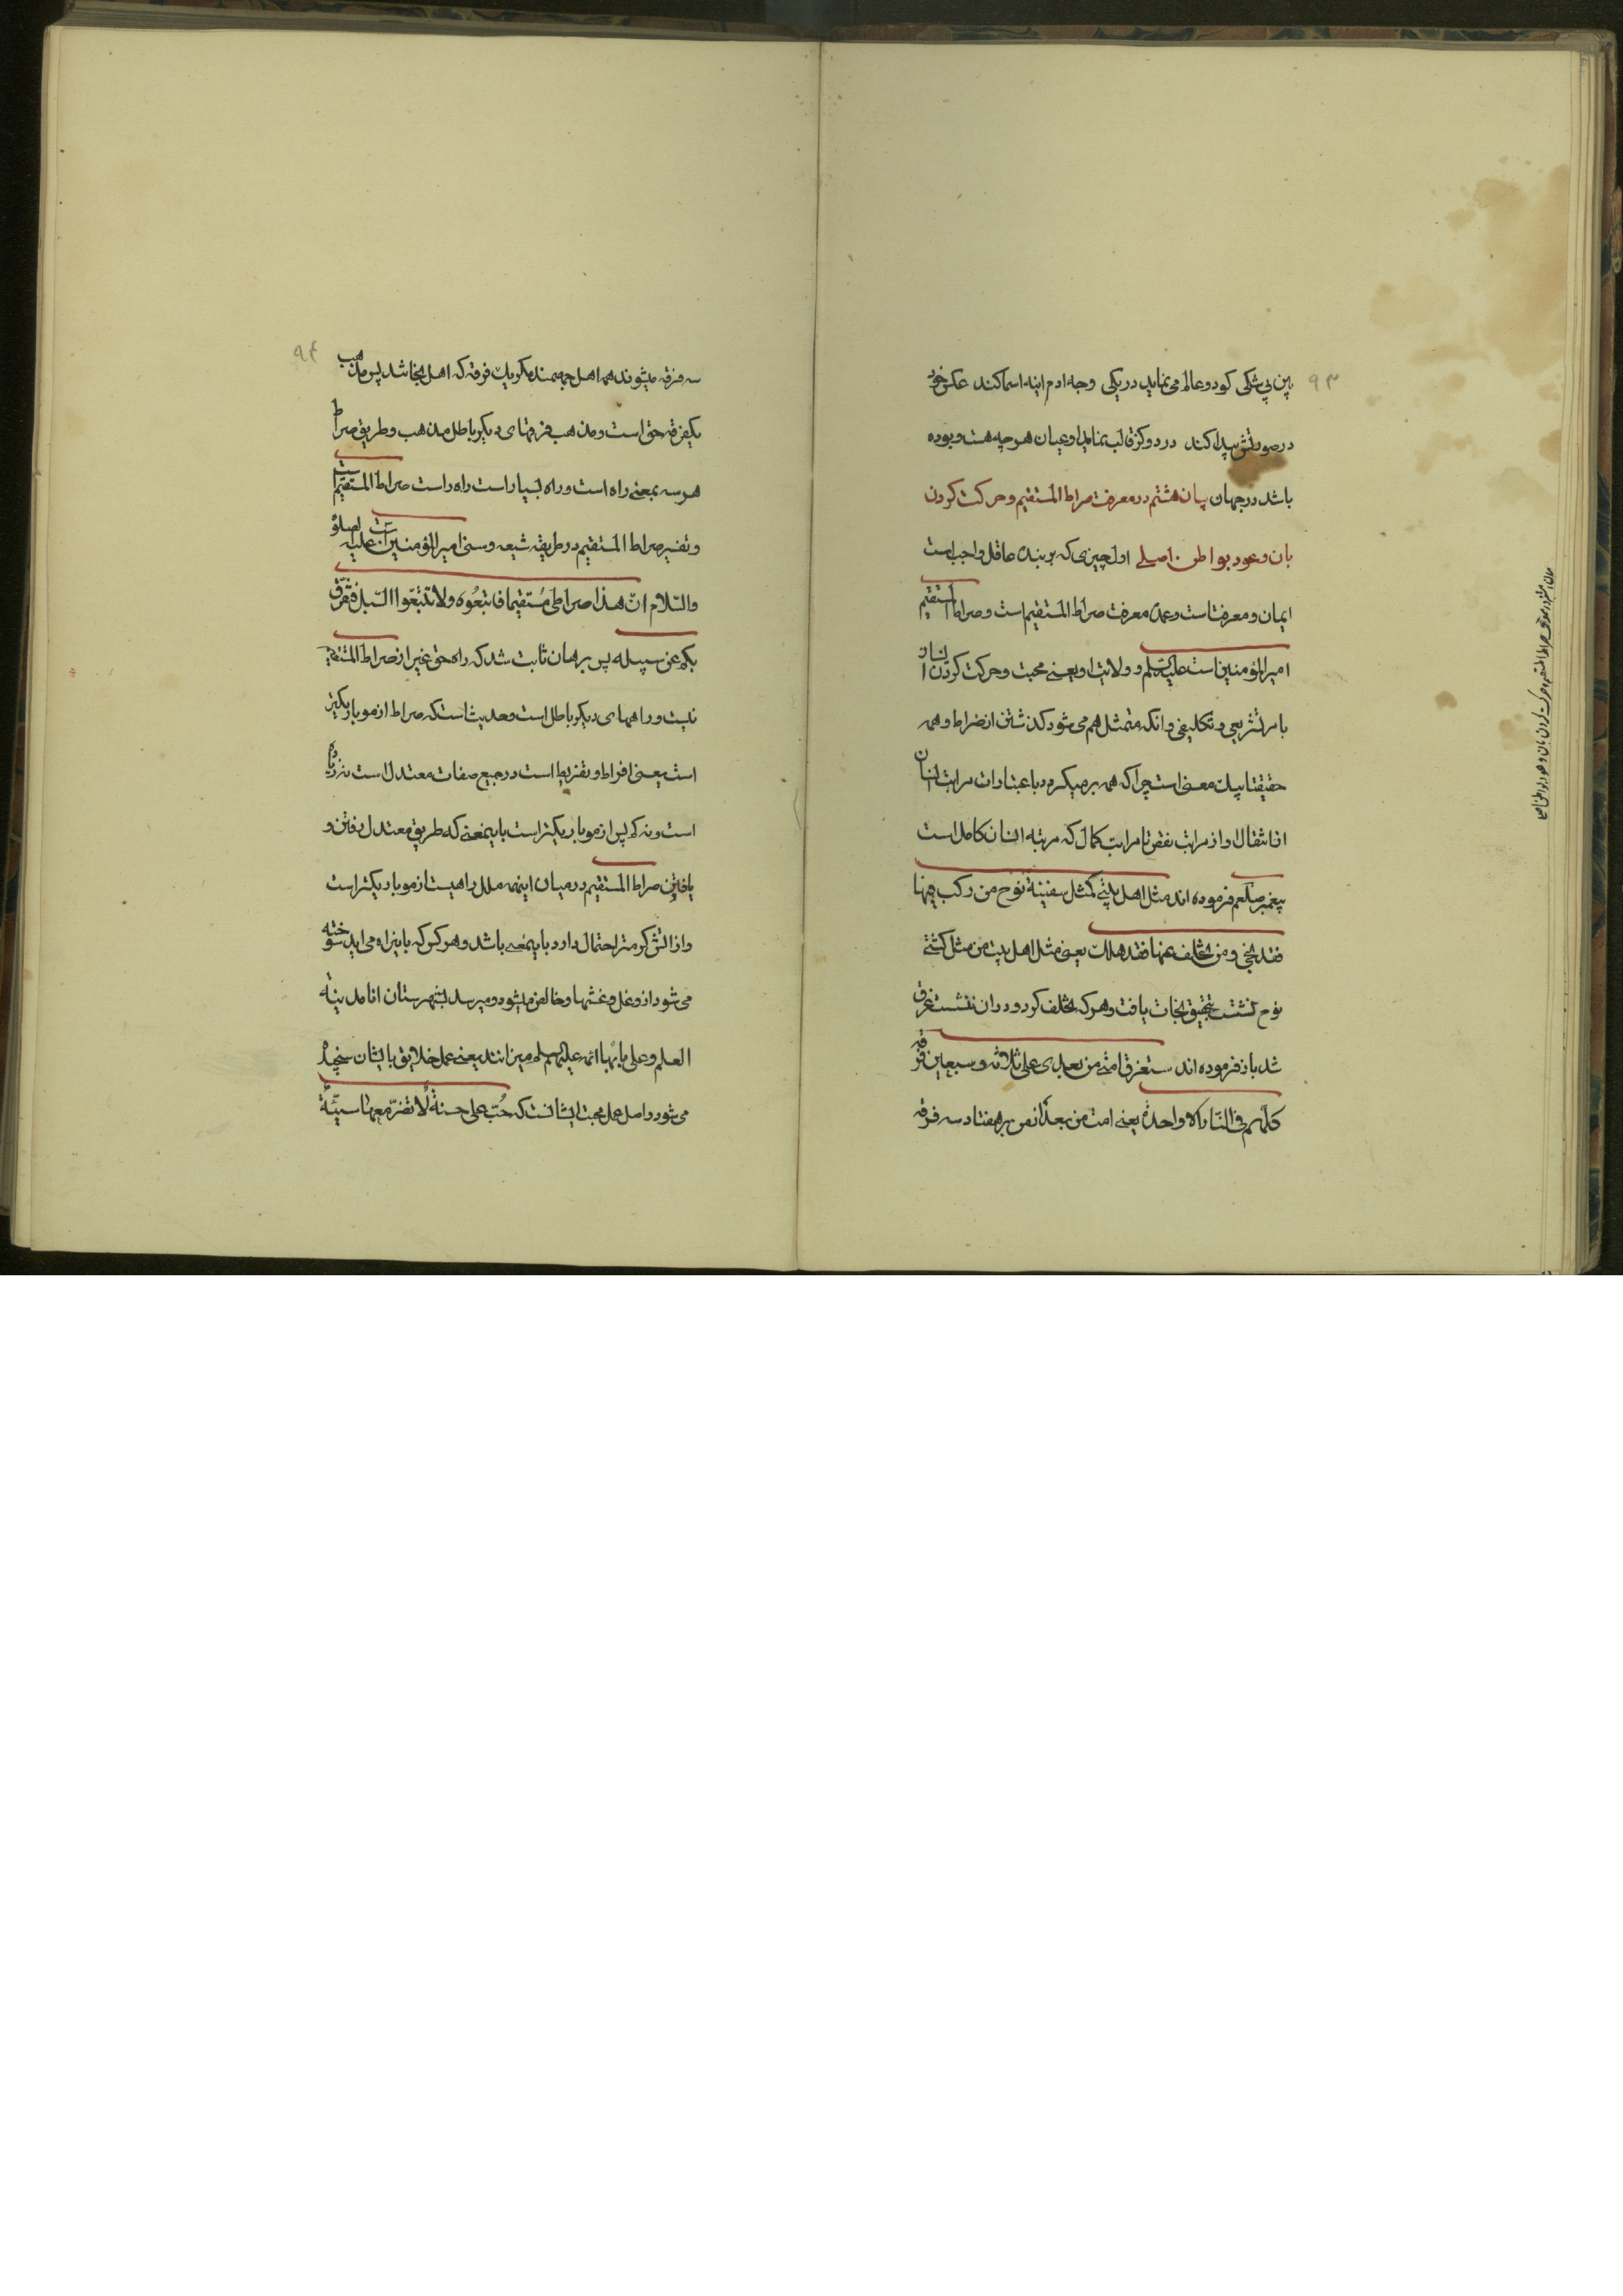 ۹۳
بین بی شکی کو دو عالم می نماید در یکی وجه ادم اینه اسما کند عکس خود
در صورتش پیدا کند در دو کز قالب نماید او عیان هر چه هست و بوده
باشد در جهان بیان هشتم در معرفت صراط المستقیم و حرکت کردن
بان و عود بوا طن اصلی اول چیزی که بر بنده عاقل واجب است
ایمان و معرفتست و عمده معرفت صراط المستقیم است و صراط المستقیم
امیر المؤمنین است علیه السلم و ولایت او یعنی محبت و حرکت کردن انسان
بامر تشریعی و تکلیفی و انکه متمثل هم می شود کذشتن از صراط و همه
حقیقتا بیك معنی است چرا که همه بر میکردد باعتبارات مراتب انسان
از انتقال او از مراتب نقص تا مراتب کمال که مرتبه انسان کامل است
پیغمبر صلعم فرموده اند مثل اهل بیتی کمثل سفینة نوح من رکب فیها
فقد نجی و من تخلف عنها فقد هلك یعنی مثل اهل بیت من مثل کشتی
نوح نشست بتحقیق نجات یافت و هر که تخلف کرد و در ان ننشست غرق
شد باز فرموده اند ستفرق امتی من بعدی علی ثلاثه و سبعین فرقه
کلهم فی النار الا واحدة یعنی امت من بعد از من بر هفتاد سه فرقه
بیان هشتم در معرفت صراط المستقیم و حرکت کردن بان و عود بوا طن اصلی
۹۴
سه فرقه میشوند همه اهل جهمند مکر یك فرقه که اهل نجا شد پس مذهب
یکفرقه حق است و مذهب فرقهای دیکر باطل مذهب و طریق صراط
هر سه بمعنی راه است و راه بسیار است راه راست صراط المستقیم است
و تفسیر صراط المستقیم در طریقه شیعه و سنی امیر المؤمنین است علیه الصلوة
والسّلام انّ هذا صراطی مُستقیما فاتبعُوه ولا تتبّعوا السّبل فتفرّق
بکم عن سبیله پس برهان ثابت شد که راه حق غیر از صراط المستقیم
نیست و راههای دیکر باطل است و حدیث است که صراط از مو باریکتر
است یعنی افراط و تفریط است در جمیع صفات معتدل است نه زیاده
است و نه کم پس از مو باریکتر است باینمعنی که طریق معتدل رفتن و
یافتن صراط المستقیم در میان اینهمه ملل راهیست از مو باریکتر است
و از اتش کرمتر احتمال دارد باینمعنی باشد و هر کس که باینراه می اید سوخته
می شود از و غل و غشها و خالص میشود و میرسد بشهرستان انا مدینة
العلم و علی بابها ائمه علیهم سلم میزانند یعنی عمل خلایق بایشان سنجیده
می شود و اصل عمل محبت ایشانست که حُبّ علی حسنةٌ لا تضرّ معها سیّئةٌ